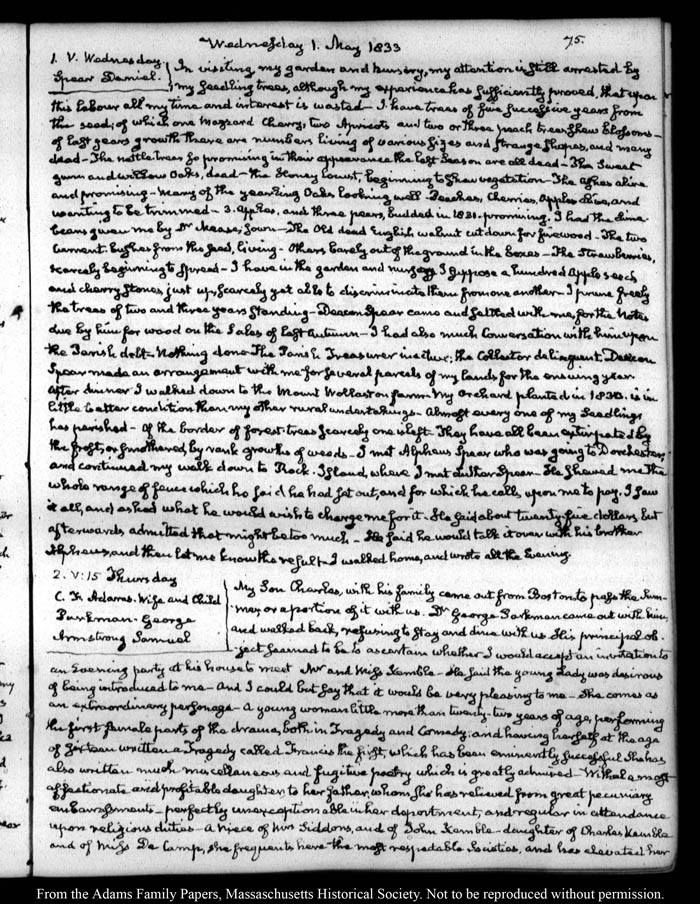 Wednesday 1. May 1833
75.
1. V. Wednesday.
Spear Daniel.
In visiting my garden and nursery, my attention is still arrested by
my seedling trees, although my experience has sufficiently proved, that upon
this labour all my time and interest is wasted— I have trees of five successive years from
the seed; of which one Mazzard Cherry, two Apricots and two or three peach trees shew blossoms—
of last years growth there are numbers living of various sizes and strange shapes, and many
dead— The nettle trees so promising in their appearance the last season are all dead— The Sweet
gum and willow Oaks, dead— the Honey locust, beginning to shew vegetation— The ashes alive
and promising— many of the yearling Oaks looking well— Peaches, Cherries, Apples alive, and
wanting to be trimmed— 3. apples, and three pears, budded in 1831. promising. I had the Lima
beans given me by Dr Mease, sown— The Old dead English walnut cut down for firewood— The two
Currant bushes from the seed, living— Others barely out of the ground in the boxes— The Strawberries,
scarcely beginning to spread— I have in the garden and nursery I suppose a hundred Apple seed
and cherry stones, just up, scarcely yet able to discriminate them from one another— I prune freely
the trees of two and three years standing— Deacon Spear came and settled with me, for the Notes
due by him for wood on the Sales of last Autumn— I had also much Conversation with him upon
the Parish debt— Nothing done— The Parish Treasurer inactive; the Collector delinquent. Deacon
Spear made an arrangement with me for several parcels of my lands for the ensuing year.
After dinner I walked down to the Mount Wollaston farm— My Orchard planted in 1830. is in
little better condition than my other rural undertakings— Almost every one of my Seedlings
has perished— of the border of forest trees scarcely one is left— They have all been extirpated by
the frost, or smothered by rank growths of weeds— I met Alpheus Spear who was going to Dorchester,
and continued my walk down to Rock-Island, where I met Luther Spear— He shewed me the
whole range of fence which he said he had set out, and for which he calls upon me to pay. I saw
it all, and asked what he would wish to charge me for it. He said about twenty five dollars, but
afterwards admitted that might be too much— He said he would talk it over with his brother
Alpheus, and then let me know the result— I walked home, and wrote all the Evening.
2. V:15 Thursday
C. F. Adams. Wife and Child
Parkman. George
Armstrong Samuel
My Son Charles, with his family came out from Boston to pass the Sum-
mer or a portion of it with us. Dr George Parkman came out with him,
and walked back, refusing to stay and dine with us. His principal ob-
ject seemed to be to ascertain whether I would accept an invitation to
an Evening party at his house to meet Mr and Miss Kemble— He said the young Lady was desirous
of being introduced to me— And I could but say that it would be very pleasing to me— She comes as
an extraordinary personage— A young woman little more than twenty-two years of age, performing
the first female parts of the drama, both in Tragedy and Comedy; and having herself at the age
of sixteen written a Tragedy called Francis the first, which has been eminently successful She has
also written much miscellaneous and fugitive poetry which is greatly admired— Withal a most
affectionate and profitable daughter to her father, whom she has relieved from great pecuniary
embarrassments— perfectly unexceptionable in her deportment, and regular in attendance
upon religious duties— a Niece of Mrs Siddons, and of John Kemble— daughter of Charles Kemble
and of Miss De Camp, she frequents here the most respectable Societies, and has elevated her
From the Adams Family Papers, Massachusetts Historical Society. Not to be reproduced without permission.